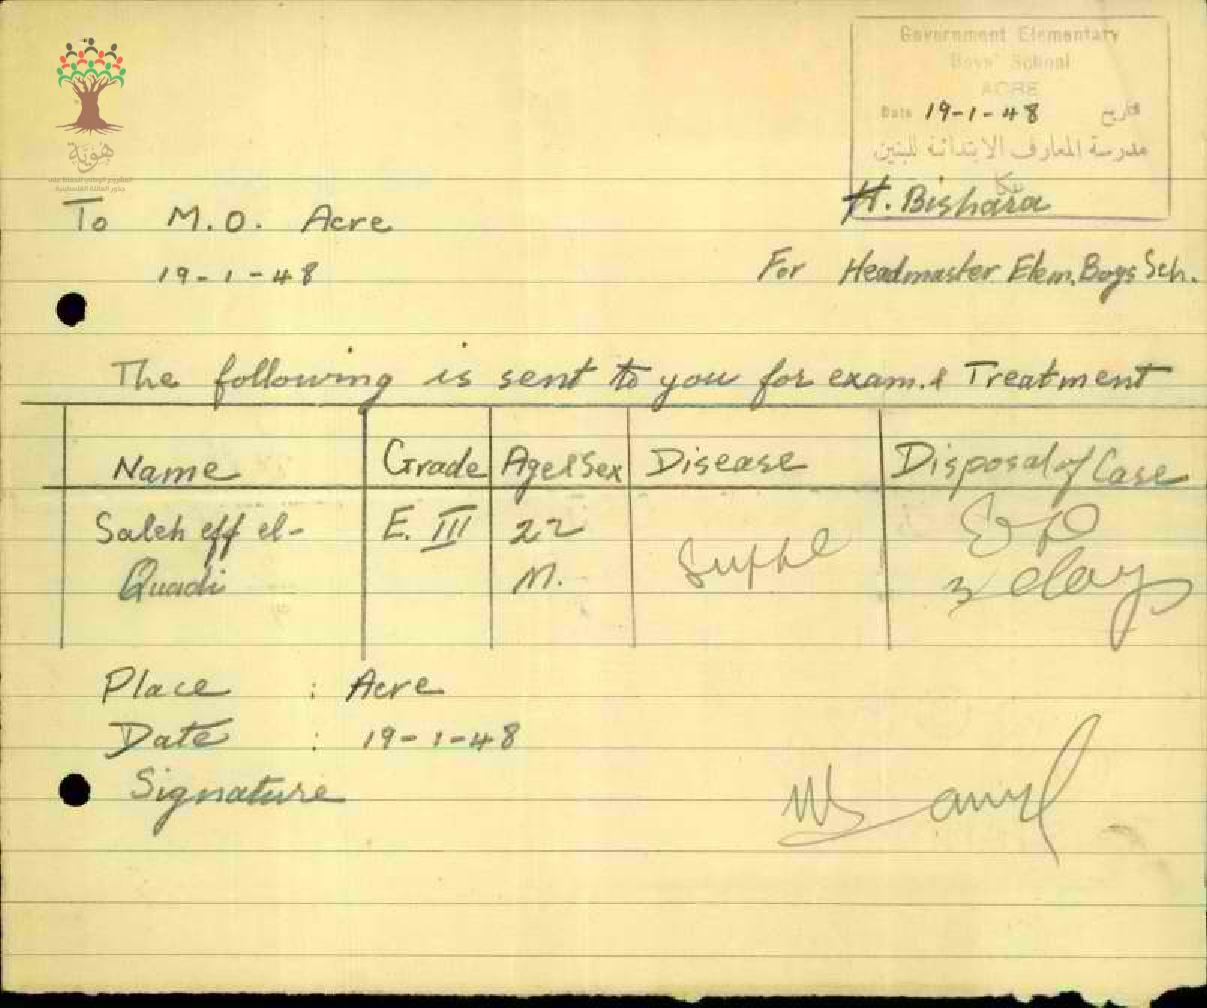 هُوِيَّة
المشروع الوطني للحفاظ على
جذور العائلة الفلسطينية
Government Elementary
Boys' School
ACRE
Date 19-1-48 تاريخ
مدرسة المعارف الابتدائية للبنين
عكا
To M.O. Acre
19-1-48
H. Bishara
For Headmaster Elem. Boys Sch.
The following is sent to you for exam. & Treatment
Name Grade Age & Sex Disease Disposal of Case
Saleh eff el- E. III 22
Quadi M.
3 days
Place : Acre
Date : 19-1-48
Signature